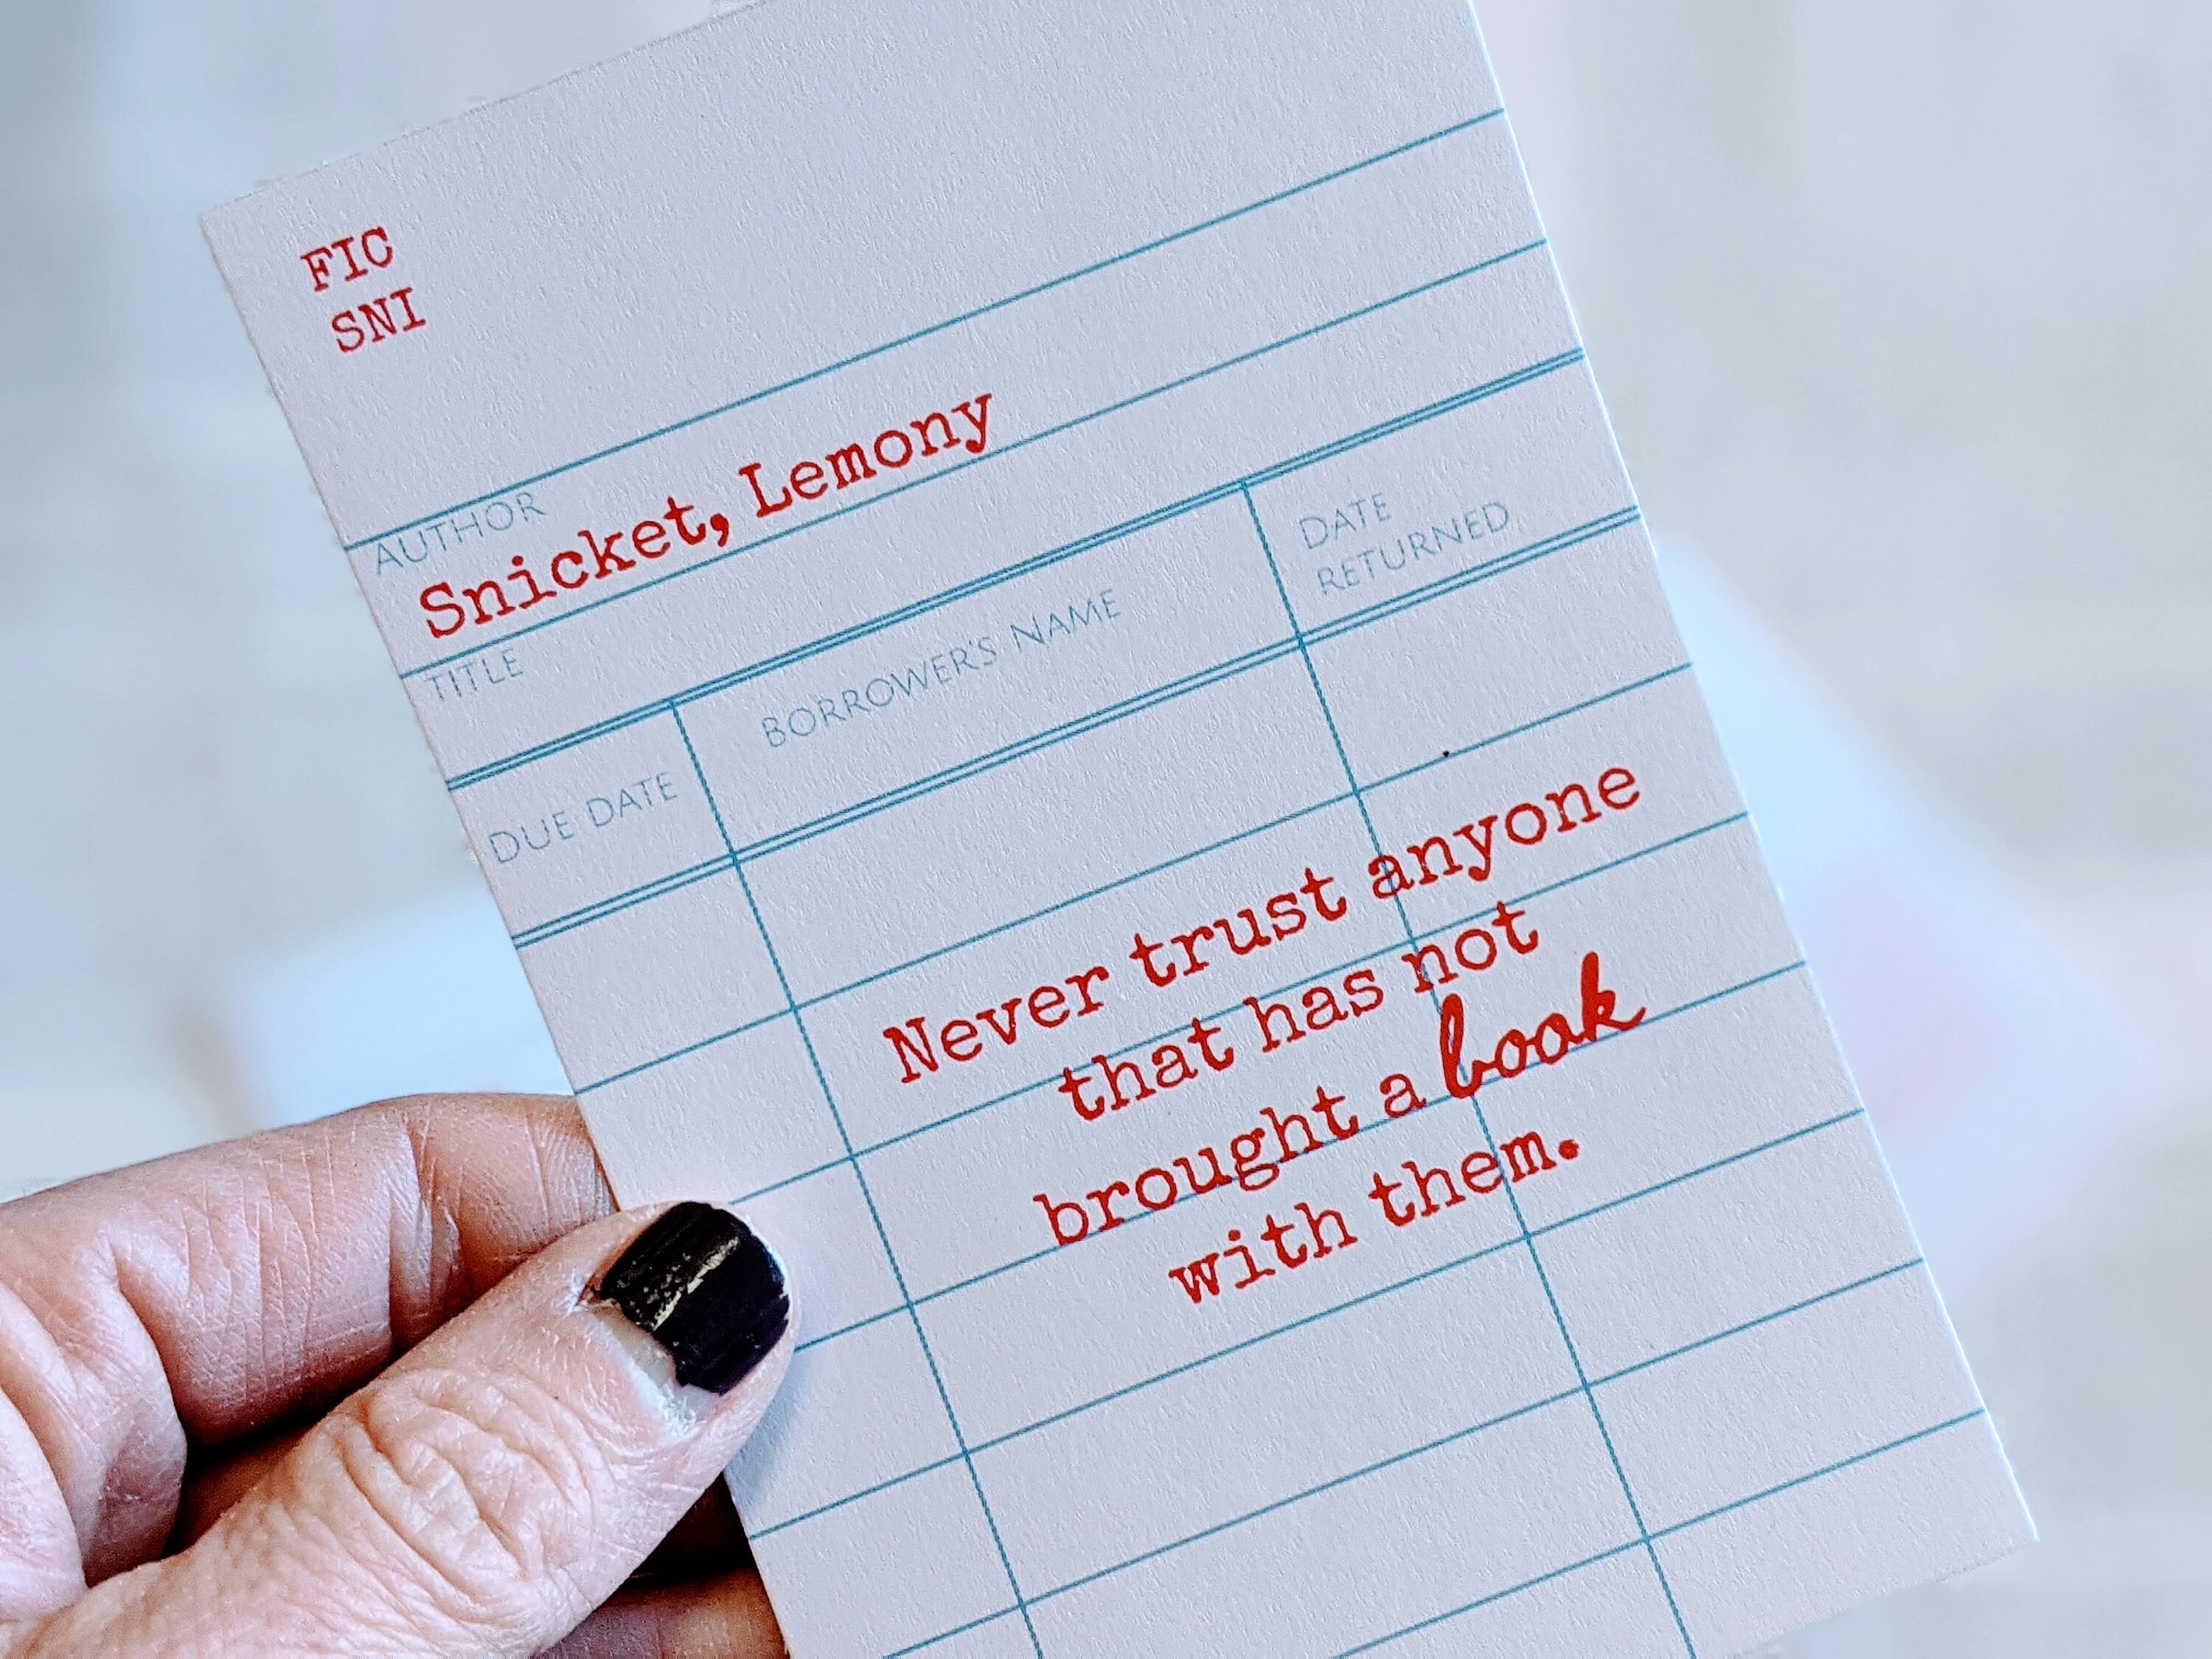 FIC
SNI
AUTHOR
Snicket, Lemony
TITLE
DUE DATE
BORROWER'S NAME
DATE
RETURNED
Never trust anyone
that has not
brought a book
with them.